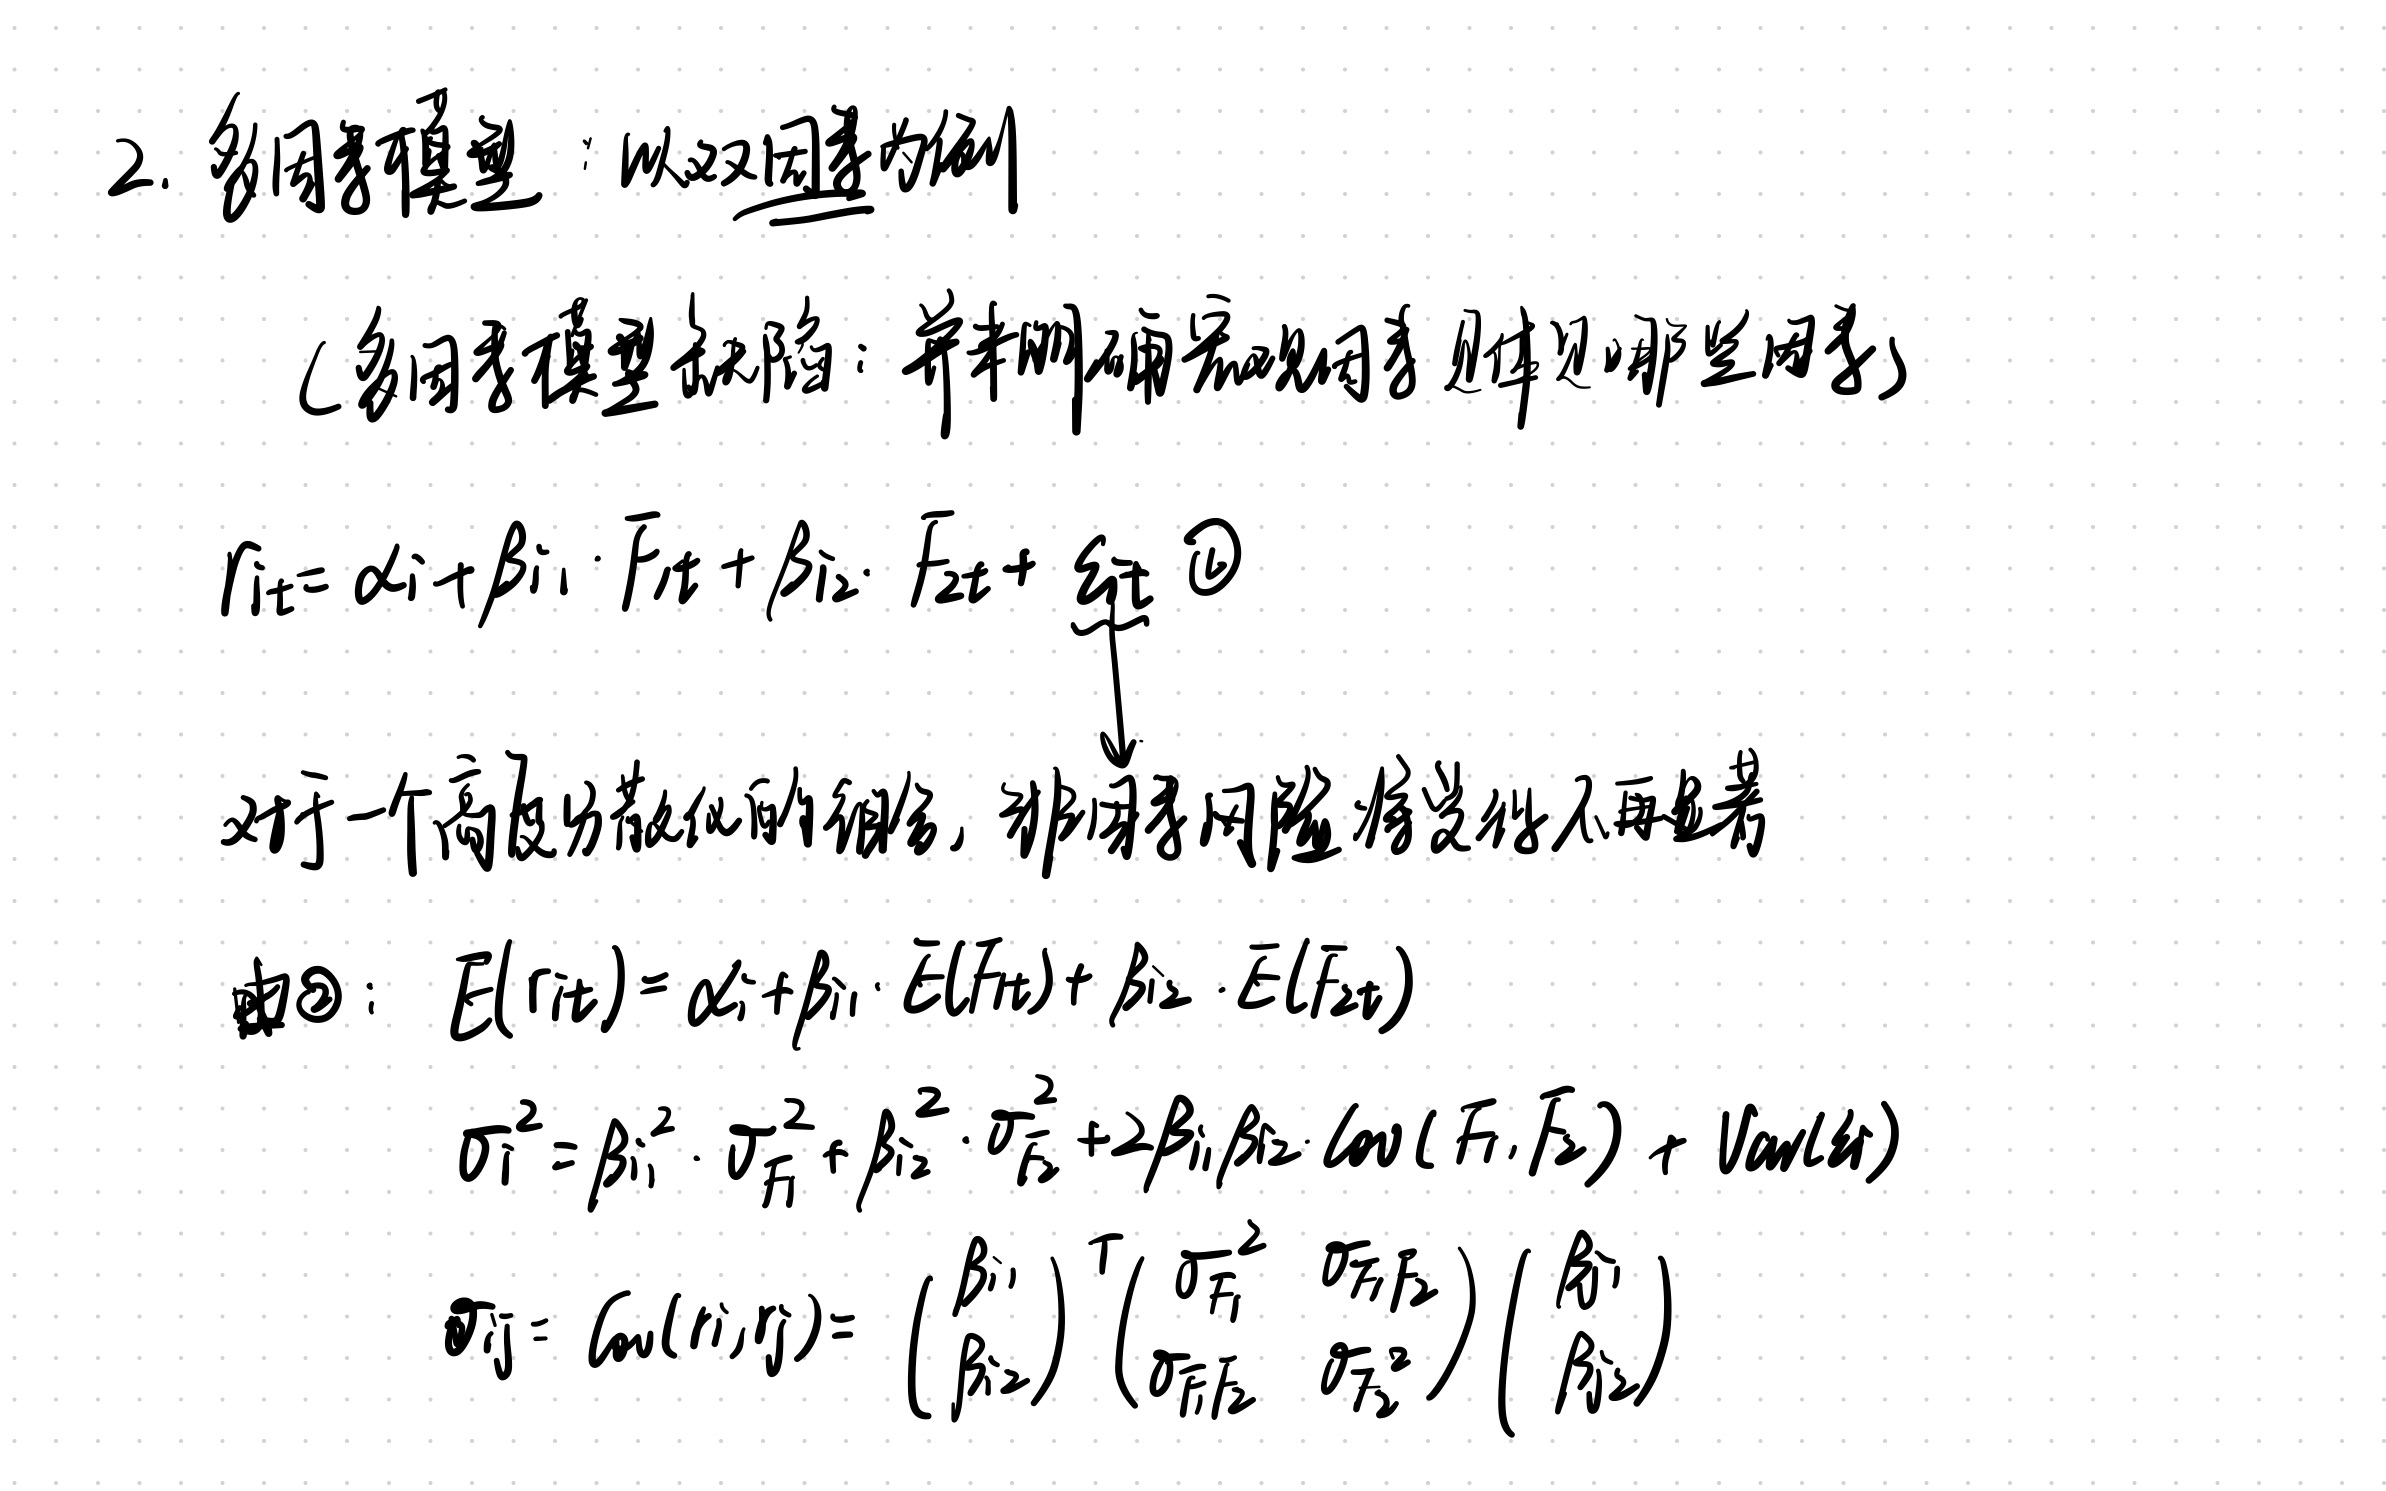 2. 多因素模型：以双因素为例
(多因素模型缺陷：并未明确需要哪些因素 / 选择到哪些因素)
r_it = α_i + β_i1 · F_1t + β_i2 · F_2t + ε_it ②
对于一个高度分散化的组合，非因素风险将变得不再显著
由②： E(r_it) = α_i + β_i1 · E(F_1t) + β_i2 · E(F_2t)
σ_i² = β_i1² · σ_F1² + β_i2² · σ_F2² + 2β_i1 β_i2 · Cov(F_1, F_2) + Var(ε_i)
σ_ij = Cov(r_i, r_j) = (β_i1 β_i2)^T (σ_F1² σ_F1F2 σ_F1F2 σ_F2²) (β_j1 β_j2)